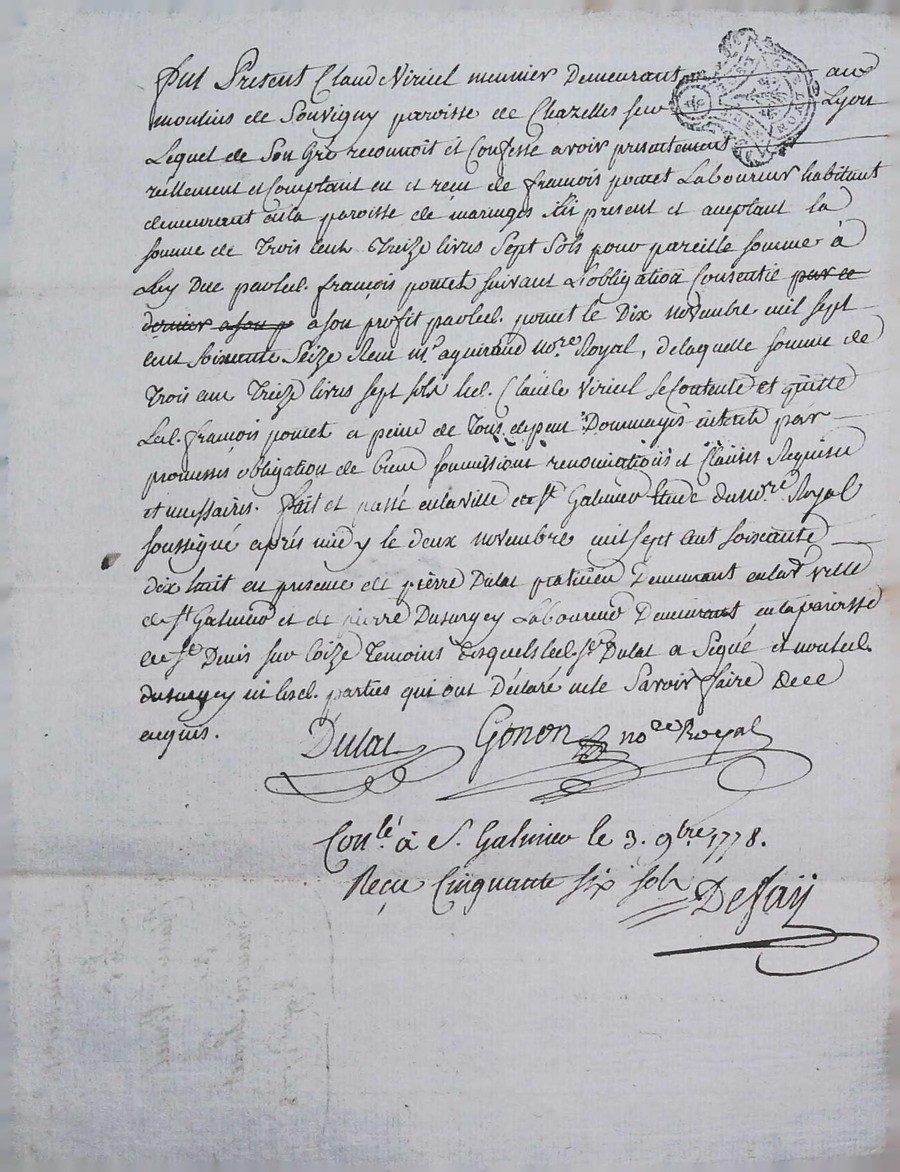 fut Present Claude Viricel meunier Demeurant aux
moulins de Souvigny paroisse de Chazelles sur Lyon
Lequel de Son Gré reconnoit et Confesse avoir presentement
reellement et Comptant eu et recu de françois poncet Laboureur habitant
demeurant en la paroisse de maringes ici present et aceptant la
somme de Trois cent Treize livres Sept Sols pour pareille somme à
Luy Due par led. françois poncet suivant L'obligation Consentie par ce
dernier a son p a son profit par led. poncet le Dix novembre mil sept
cent Soixante Seize Recu me aguiraud nore Royal, de laquelle somme de
Trois cent Treize livres sept sols led. Claude Viricel se Contente et quitte
Led. françois poncet a peine de Tous depens Dommages interets par
promesses obligation de biens soumissions renonciations et Clauses Requises
et necessaires. fait et passé en la ville de st Galmier Etude du nore Royal
soussigné après midy le deux novembre mil sept cent soixante
dix huit en presence de pierre Dulac praticien Demeurant en lad ville
de st Galmier et de pierre Dusurgey Laboureur Demeurant en la paroisse
de st Denis sur Coize Temoins desquels led. sr Dulac a Signé et non led.
dusurgey ni lesd. parties qui ont Déclaré ne le Savoir faire De ce
enquis.
Dulac Gonon nore Royal
Conlé à St. Galmier le 3. 9bre 1778.
Reçu Cinquante six sols Defaij